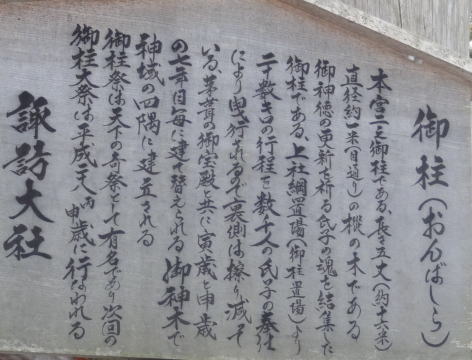 御柱(おんばしら)
本宮二之御柱である、長さ五丈(約十六米)
直径約一米(目通り)の樅の木である
御神徳の更新を祈る氏子の魂を結集した
御柱である、上社綱置場(御柱置場)より
二十数キロの行程を数千人の氏子の奉仕
により曳行されるので裏側は擦り減って
いる、茅葺の御宝殿と共に寅歳と申歳
の七年目毎に建て替えられる御神木で
神域の四隅に建立される
御柱祭は天下の奇祭として有名であり次回の
御柱大祭は平成二八丙申歳に行なわれる
諏訪大社